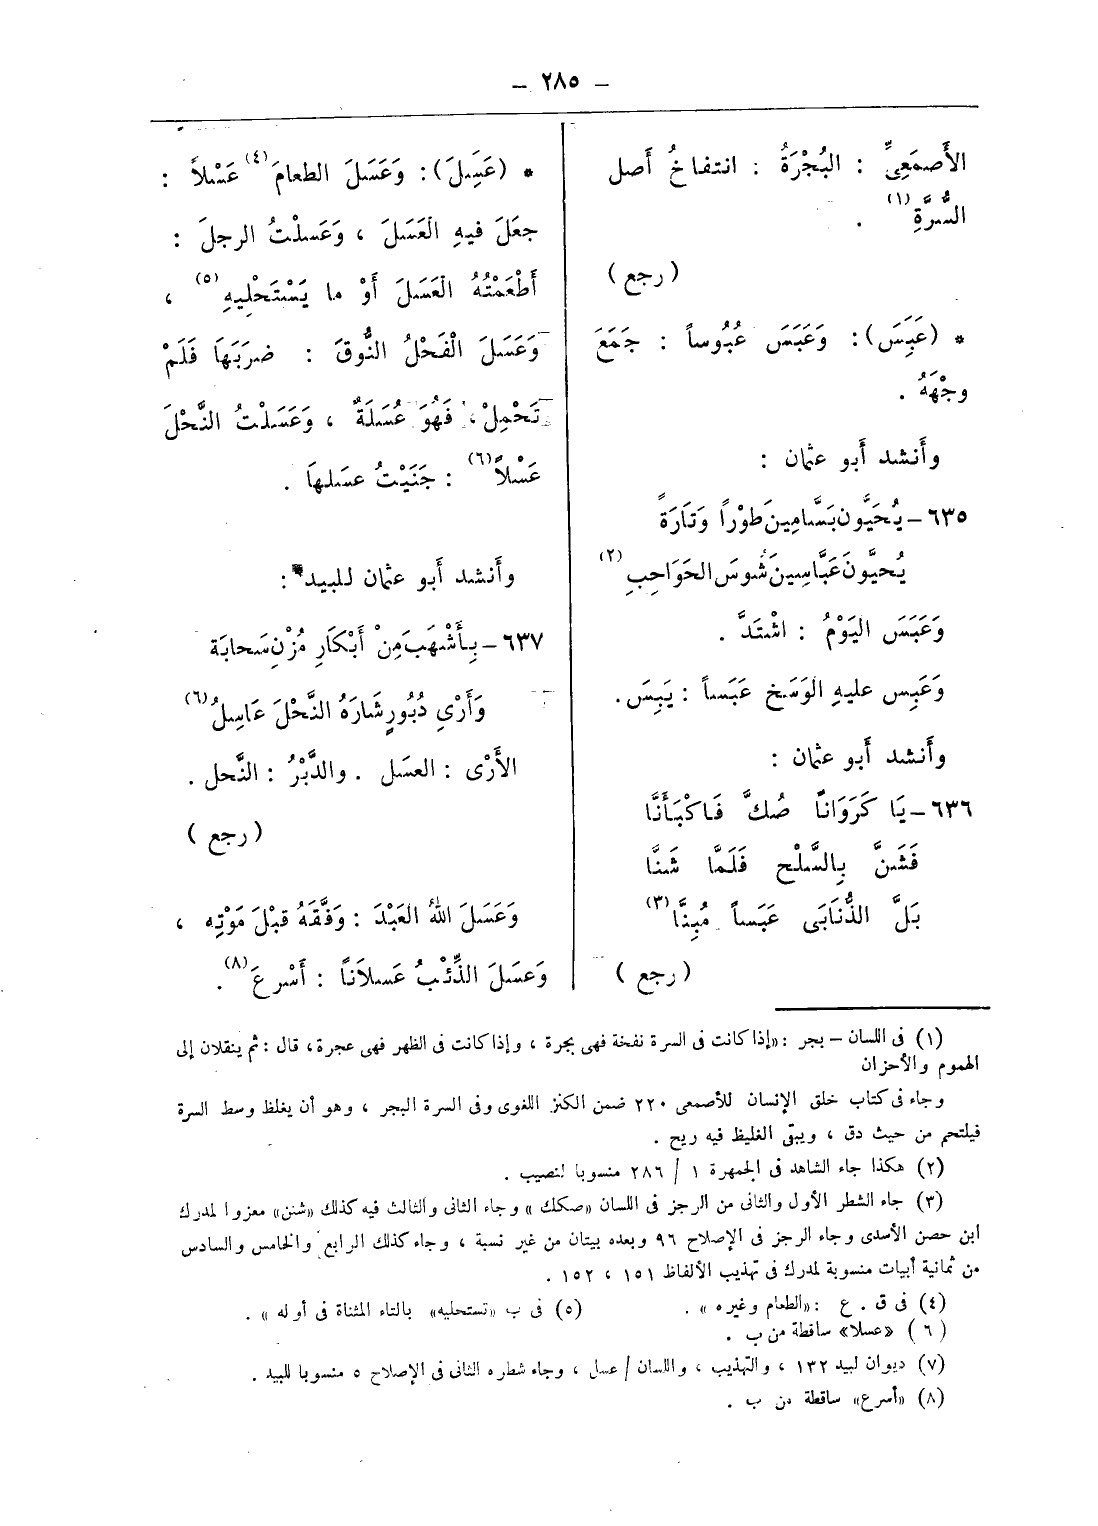 – ٢٨٥ –
الأَصمَعِىِّ : البُجْرَةُ : انتفاخُ أَصل
السُّرَّةِ (١) .
( رجع )
* (عَبَِسَ): وَعَبَسَ عُبُوساً : جَمَعَ
وجْهَهُ .
وأَنشد أَبو عثمان :
٦٣٥ – يُحَيَّون بَسَّامِينَ طوْراً وَتَارَةً
يُحيَّونَ عَبَّاسِينَ شُوسَ الحَوَاجِبِ (٢)
وَعَبَسَ اليَوْمُ : اشْتَدَّ .
وَعَبِس عليهِ الوَسَخ عَبَساً : يَبِسَ .
وأَنشد أَبو عثمان :
٦٣٦ – يَا كَرَوَاناً صُكَّ فَاكْبَأَنَّا
فَشَنَّ بِالسَّلْحِ فَلَمَّا شَنَّا
بَلَّ الذُّنَابَى عَبَساً مُبِنَّا (٣)
( رجع )
* (عَسَِلَ): وَعَسَلَ الطعامَ (٤) عَسْلاً :
جعَلَ فيهِ العَسَلَ ، وَعَسلْتُ الرجلَ :
أَطْعَمْتُهُ العَسَلَ أَوْ ما يَسْتَحْلِيهِ (٥) ،
وَعَسَلَ الْفَحْلُ النُّوقَ : ضرَبَهَا فَلَمْ
تَحْمِلْ ، فَهُوَ عُسَلَةٌ ، وَعَسَلْتُ النَّحْلَ
عَسْلاً (٦) : جَنَيْتُ عسَلهاَ .
وأَنشد أَبو عثمان للبيد :
٦٣٧ – بِأَشْهَبَ مِنْ أَبْكَارِ مُزْنِ سَحابَة
وَأَرْىِ دُبُورٍ شَارَهُ النَّحْلَ عَاسِلُ (٦)
الأَرْى : العسَل . والدَّبْرُ : النَّحل .
( رجع )
وَعَسَلَ اللهُ العَبْدَ : وَفَّقَهُ قبْلَ مَوْتِه ،
وَعسَلَ الذِّئْبُ عَسلاَناً : أَسْرعَ (٨) .
(١) فى اللسان – بجر : «إذا كانت فى السرة نفخة فهى بجرة ، وإذا كانت فى الظهر فهى عجرة، قال : ثم ينقلان إلى
الهموم والأحزان
وجاء فى كتاب خلق الإنسان للأصمعى ٢٢٠ ضمن الكنز اللغوى وفى السرة البجر ، وهو أن يغلظ وسط السرة
فيلتحم من حيث دق ، ويبقى الغليظ فيه ريح .
(٢) هكذا جاء الشاهد فى الجمهرة ١ / ٢٨٦ منسوبا لنصيب .
(٣) جاء الشطر الأول والثانى من الرجز فى اللسان «صكك» وجاء الثانى والثالث فيه كذلك «شنن» معزوا لمدرك
ابن حصن الأسدى وجاء الرجز فى الإصلاح ٩٦ وبعده بيتان من غير نسبة ، وجاء كذلك الرابع والخامس والسادس
من ثمانية أبيات منسوبة لمدرك فى تهذيب الألفاظ ١٥١ ، ١٥٢ .
(٤) فى ق . ع : «الطعام وغيره» . (٥) فى ب «تستحليه» بالتاء المثناة فى أوله » .
(٦) «عسلا» ساقطة من ب .
(٧) ديوان لبيد ١٣٢ ، والتهذيب ، واللسان / عسل ، وجاء شطره الثانى فى الإصلاح ٥ منسوبا للبيد .
(٨) «أسرع» ساقطة من ب .